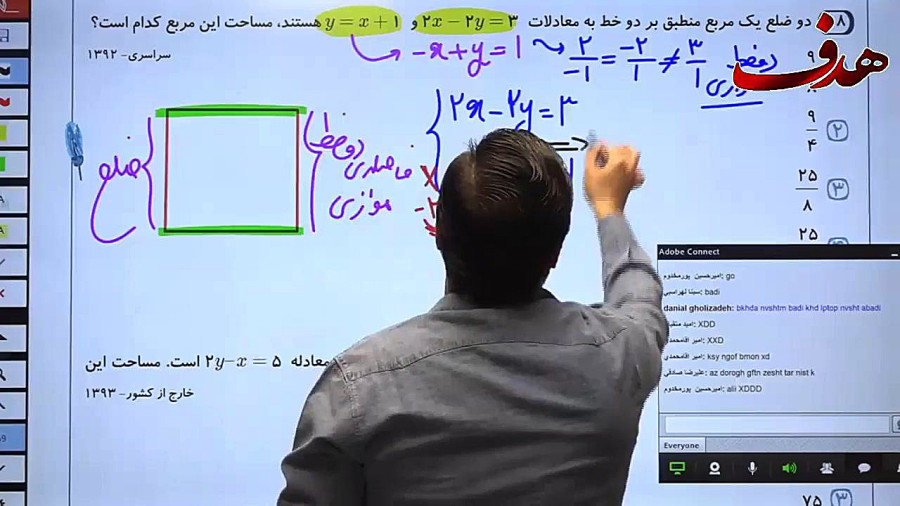 ۸ دو ضلع یک مربع منطبق بر دو خط به معادلات ۲x − ۲y = ۳ و y = x + ۱ هستند، مساحت این مربع کدام است؟
سراسری- ۱۳۹۲
هدف
-x+y=1
۲/-۱ = -۲/۱ ≠ ۳/۱
دو خط
موازی
۲x-۲y=۳
ضلع
فاصله‌ی دو خط
موازی
۹
۹/۴ ۲
۲۵/۸ ۳
۲۵
معادله ۲y−x = ۵ است. مساحت این
خارج از کشور- ۱۳۹۳
۷۵ ۳
Adobe Connect
امیرحسین پورمخدوم: go
سینا لهراسبی: badi
danial gholizadeh: bkhda nvshtm badi khd lptop nvsht abadi
XDD
امیر آقامحمدی: XXD
امیر آقامحمدی: ksy ngof bmon xd
علیرضا صادقی: az dorogh gftn zesht tar nist k
امیرحسین پورمخدوم: ali XDDD
Everyone